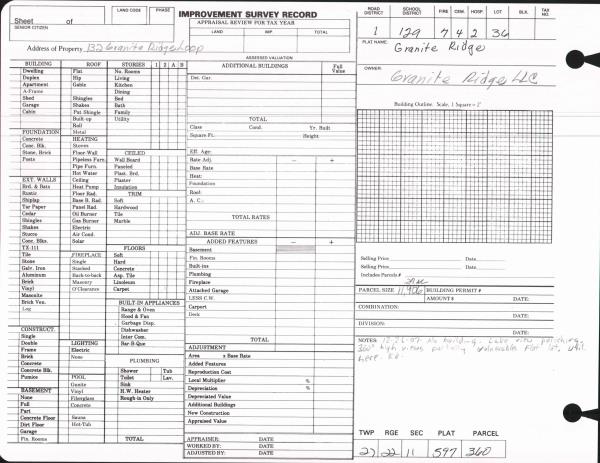 Sheet of
SENIOR CITIZEN
LAND CODE PHASE
IMPROVEMENT SURVEY RECORD
APPRAISAL REVIEW FOR TAX YEAR
LAND IMP. TOTAL
ROAD DISTRICT SCHOOL DISTRICT FIRE CEM. HOSP. LOT BLK. TAX NO.
1 129 7 4 2 36
PLAT NAME:
Granite Ridge
Address of Property 132 Granite Ridge Loop
ASSESSED VALUATION
OWNER:
Granite Ridge LLC
BUILDING ROOF STORIES 1 2 A B
Dwelling Flat No. Rooms
Duplex Hip Living
Apartment Gable Kitchen
A-Frame Dining
Shed Shingles Bed
Garage Shakes Bath
Cabin Pat. Shingle Family
Built-up Utility
Roll
FOUNDATION Metal
Concrete HEATING
Conc. Blk. Stoves CEILED
Stone, Brick Floor Wall Wall Board
Posts Pipeless Furn. Paneled
Pipe Furn. Plast. Brd.
Hot Water Plaster
EXT. WALLS Ceiling Insulation
Brd. & Bats Heat Pump TRIM
Rustic Floor Rad.
Shiplap Base B. Rad. Soft
Tar Paper Panel Rad. Hardwood
Cedar Oil Burner Tile
Shingles Gas Burner Marble
Shakes Electric
Stucco Air Cond.
Conc. Blks. Solar FLOORS
TX-111
Tile FIREPLACE Soft
Stone Single Hard
Galv. Iron Stacked Concrete
Aluminum Back-to-back Asp. Tile
Brick Masonry Linoleum
Vinyl O'Clearance Carpet
Masonite
Brick Ven. BUILT-IN APPLIANCES
Log Range & Oven
Hood & Fan
Garbage Disp.
CONSTRUCT. Dishwasher
Single Inter Com.
Double LIGHTING Bar-B-Que
Frame Electric
Brick None PLUMBING
Concrete
Concrete Blk. Shower Tub
Pumice POOL Toilet Lav.
Gunite Sink
BASEMENT Vinyl H.W. Heater
None Fiberglass Rough-in Only
Full Concrete
Part
Concrete Floor Sauna
Dirt Floor Hot-Tub
Garage
Fin. Rooms TOTAL
ADDITIONAL BUILDINGS Full Value
Det. Gar.
TOTAL
Class Cond. Yr. Built
Square Ft. Height
Eff. Age:
Rate Adj. − +
Base Rate
Heat:
Foundation
Roof:
A. C.:
TOTAL RATES
ADJ. BASE RATE
ADDED FEATURES − +
Basement
Fin. Rooms
Built-ins
Plumbing
Fireplace
Attached Garage
LESS C.W.
Carport
Deck
TOTAL
ADJUSTMENT
Area x Base Rate
Added Features
Reproduction Cost
Local Multiplier %
Depreciation %
Depreciated Value
Additional Buildings
New Construction
Appraised Value
APPRAISER: DATE
WORKED BY: DATE
ADJUSTED BY: DATE
Building Outline. Scale, 1 Square = 2'
Selling Price Date
Selling Price Date
Includes Parcels #
PARCEL SIZE BUILDING PERMIT #
AMOUNT $ DATE:
COMBINATION:
DATE:
DIVISION:
DATE:
NOTES: No building. Lake view
360°
here.
TWP RGE SEC PLAT PARCEL
27 22 11 597 360